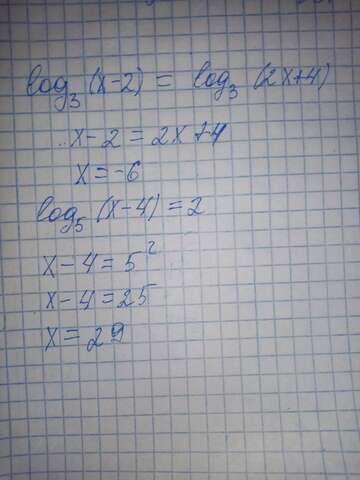 log₃ (x-2) = log₃ (2x+4)
x-2 = 2x+4
x=-6
log₅ (x-4) = 2
x-4=5²
x-4=25
x=29